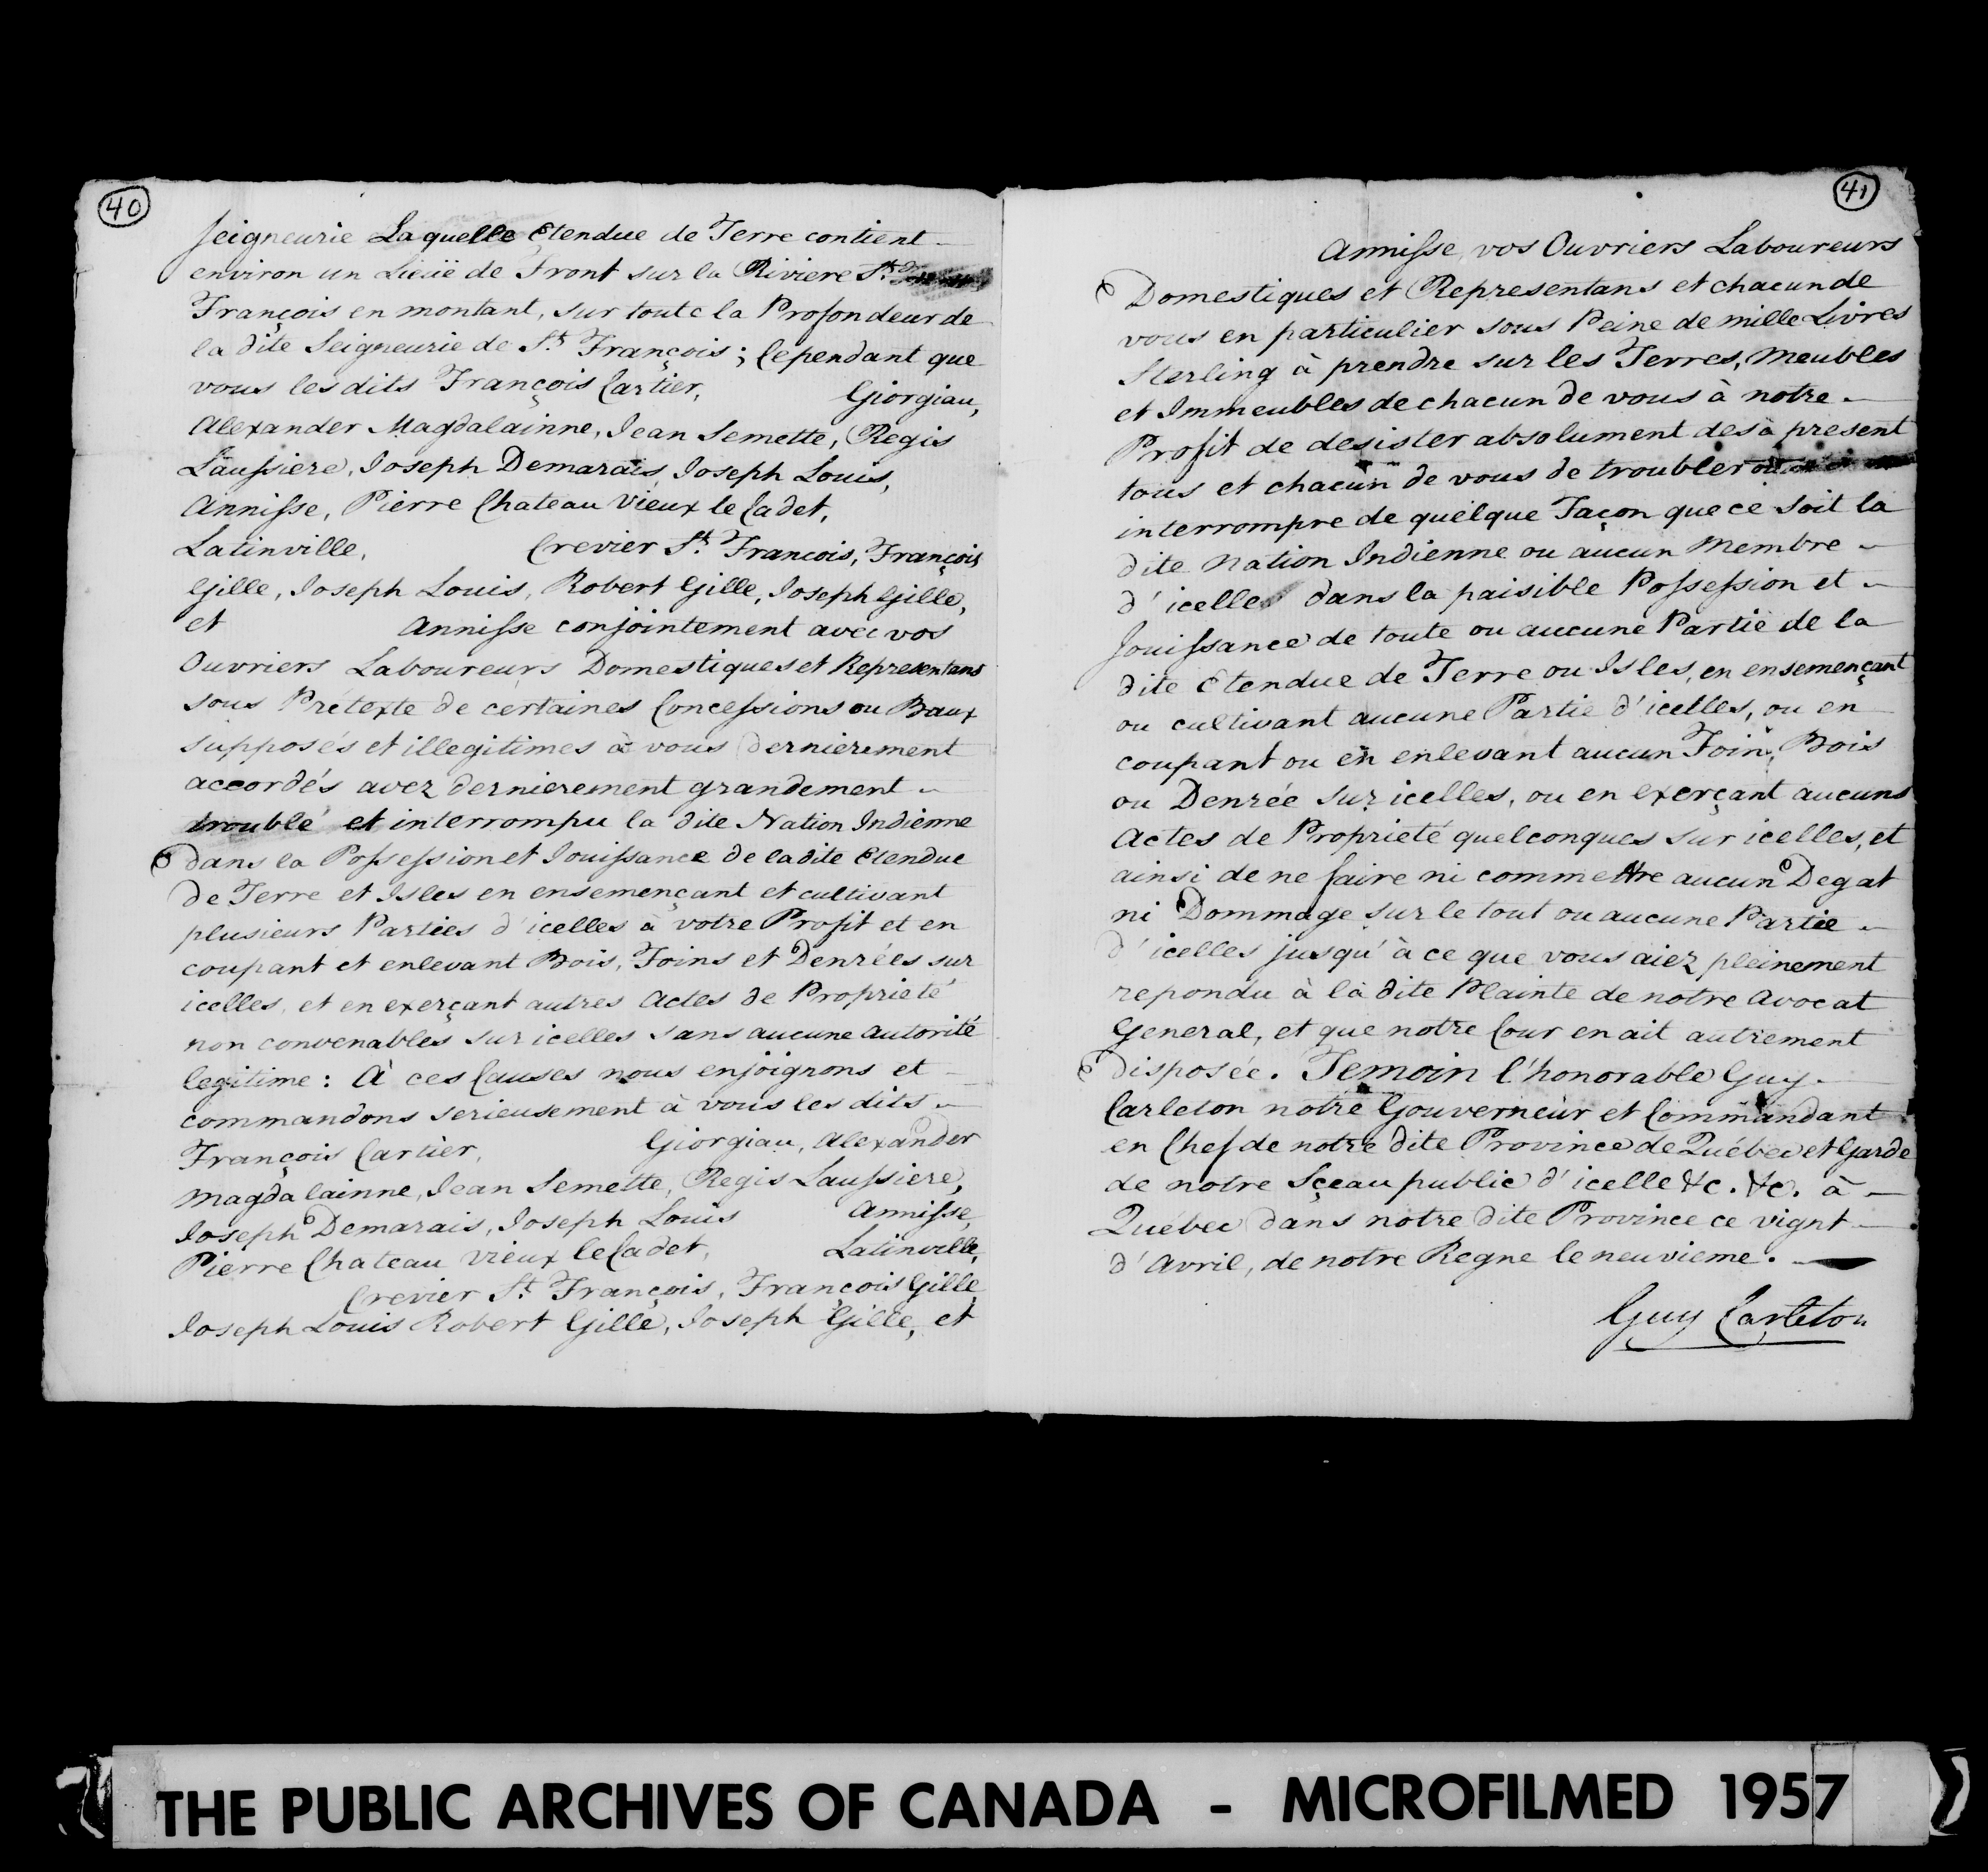 40
Seigneurie Laquelle Etendue de Terre contient
environ un Lieüe de Front sur la Riviere St.
François en montant, sur toute la Profondeur de
la dite Seigneurie de St. François; Cependant que
vous les dits François Cartier, Giorgiau,
Alexander Magdalainne, Jean Semette, Regis
Laussiere, Joseph Demarais, Joseph Louis,
Annisse, Pierre Chateau Vieux le Cadet,
Latinville, Crevier St. Francois, François
Gille, Joseph Louis, Robert Gille, Joseph Gille,
et Annisse conjointement avec vos
Ouvriers Laboureurs Domestiques et Representans
sous Prétexte de certaines Concessions ou Baux
supposés et illegitimes à vous dernierement
accordés avez dernierement grandement
troublé et interrompu la dite Nation Indienne
dans la Possession et Jouissance de la dite Etendue
de Terre et Isles en ensemençant et cultivant
plusieurs Parties d'icelles à votre Profit et en
coupant et enlevant Bois, Foins et Denrées sur
icelles, et en exerçant autres Actes de Proprieté
non convenables sur icelles sans aucune autorité
legitime: À ces Causes nous enjoignons et
commandons serieusement à vous les dits
François Cartier, Giorgiau, Alexander
Magdalainne, Jean Semette, Regis Laussiere,
Joseph Demarais, Joseph Louis Annisse,
Pierre Chateau Vieux le Cadet, Latinville,
Crevier St. François, François Gille,
Joseph Louis Robert Gille, Joseph Gille, et
41
Annisse, vos Ouvriers Laboureurs
Domestiques et Representans et chacun de
vous en particulier sous Peine de mille Livres
Sterling à prendre sur les Terres, Meubles
et Immeubles de chacun de vous à notre
Profit de desister absolument des à present
tous et chacun de vous de troubler ou
interrompre de quelque Façon que ce soit la
dite Nation Indienne ou aucun Membre
d'icelle dans la paisible Possession et
Jouissance de toute ou aucune Partie de la
dite Etendue de Terre ou Isles, en ensemençant
ou cultivant aucune Partie d'icelles, ou en
coupant ou en enlevant aucun Foin, Bois
ou Denrée sur icelles, ou en exerçant aucuns
Actes de Proprieté quelconques sur icelles, et
ainsi de ne faire ni commettre aucun Degat
ni Dommage sur le tout ou aucune Partie
d'icelles jusqu'à ce que vous aiez pleinement
repondu à la dite Plainte de notre Avocat
General, et que notre Cour en ait autrement
disposée. Temoin l'honorable Guy
Carleton notre Gouverneur et Commandant
en Chef de notre dite Province de Québec et Garde
de notre Sçeau public d'icelle &c. &c. à
Québec dans notre dite Province ce vignt
d'Avril, de notre Regne le neuvieme.
Guy Carleton
THE PUBLIC ARCHIVES OF CANADA - MICROFILMED 1957